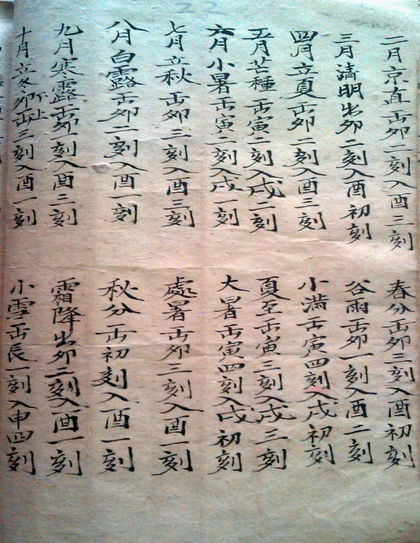 二月京直出卯二刻入酉三刻 春分出卯三刻入酉初刻
三月清明出卯二刻入酉初刻 谷雨出卯一刻入酉二刻
四月立夏出卯二刻入酉三刻 小满出寅四刻入戌初刻
五月芒種出寅一刻入戌二刻 夏至出寅三刻入戌三刻
六月小暑出寅一刻入戌一刻 大暑出寅四刻入戌初刻
七月立秋出卯三刻入酉三刻 處暑出卯三刻入酉一刻
八月白露出卯二刻入酉一刻 秋分出初刻入酉一刻
九月寒露出卯二刻入酉三刻 霜降出卯二刻入酉一刻
十月立冬出卯三刻入酉一刻 小雪出辰一刻入申四刻